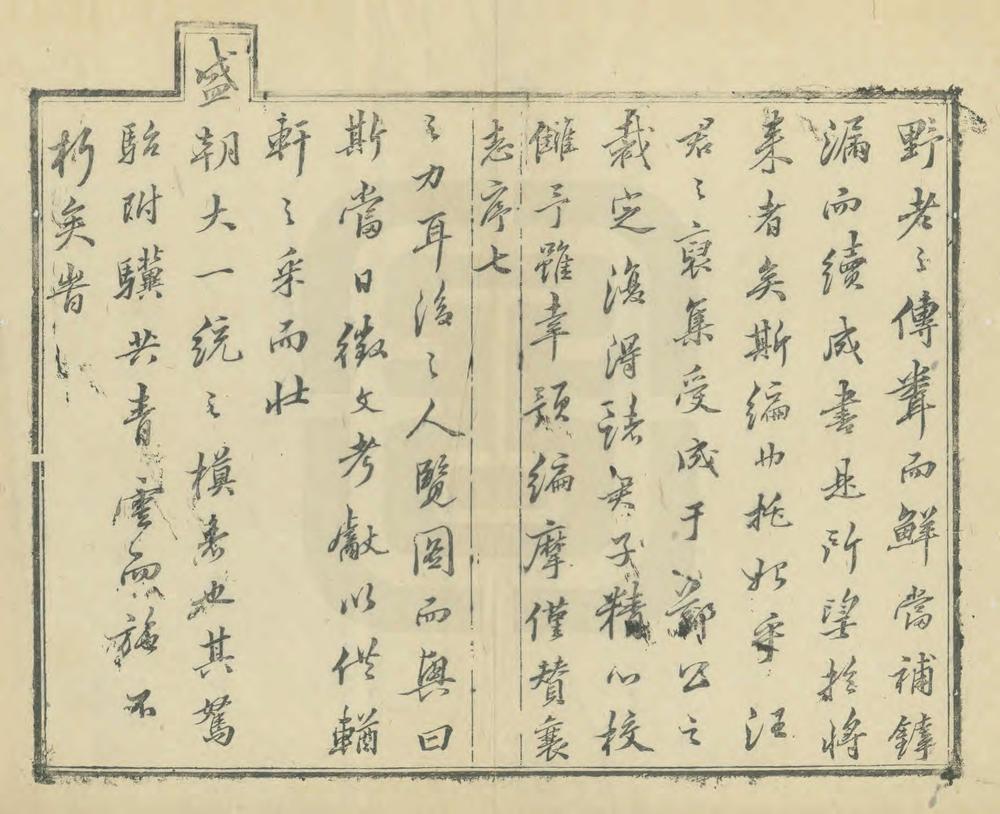 野老之傳聞而鮮當補鏬
漏而續成書是所望於將
來者矣斯編也托始乎汪
君之裒集受成于鄭公之
裁定復得諸君子精心校
讎予雖幸預編摩僅贊襄
志序七
之力耳後之人覽圖而輿曰
斯當日徵文考獻以供輶
軒之采而壯
盛朝大一統之模者也其駑
駘附驥共青雲而施不
朽矣昔